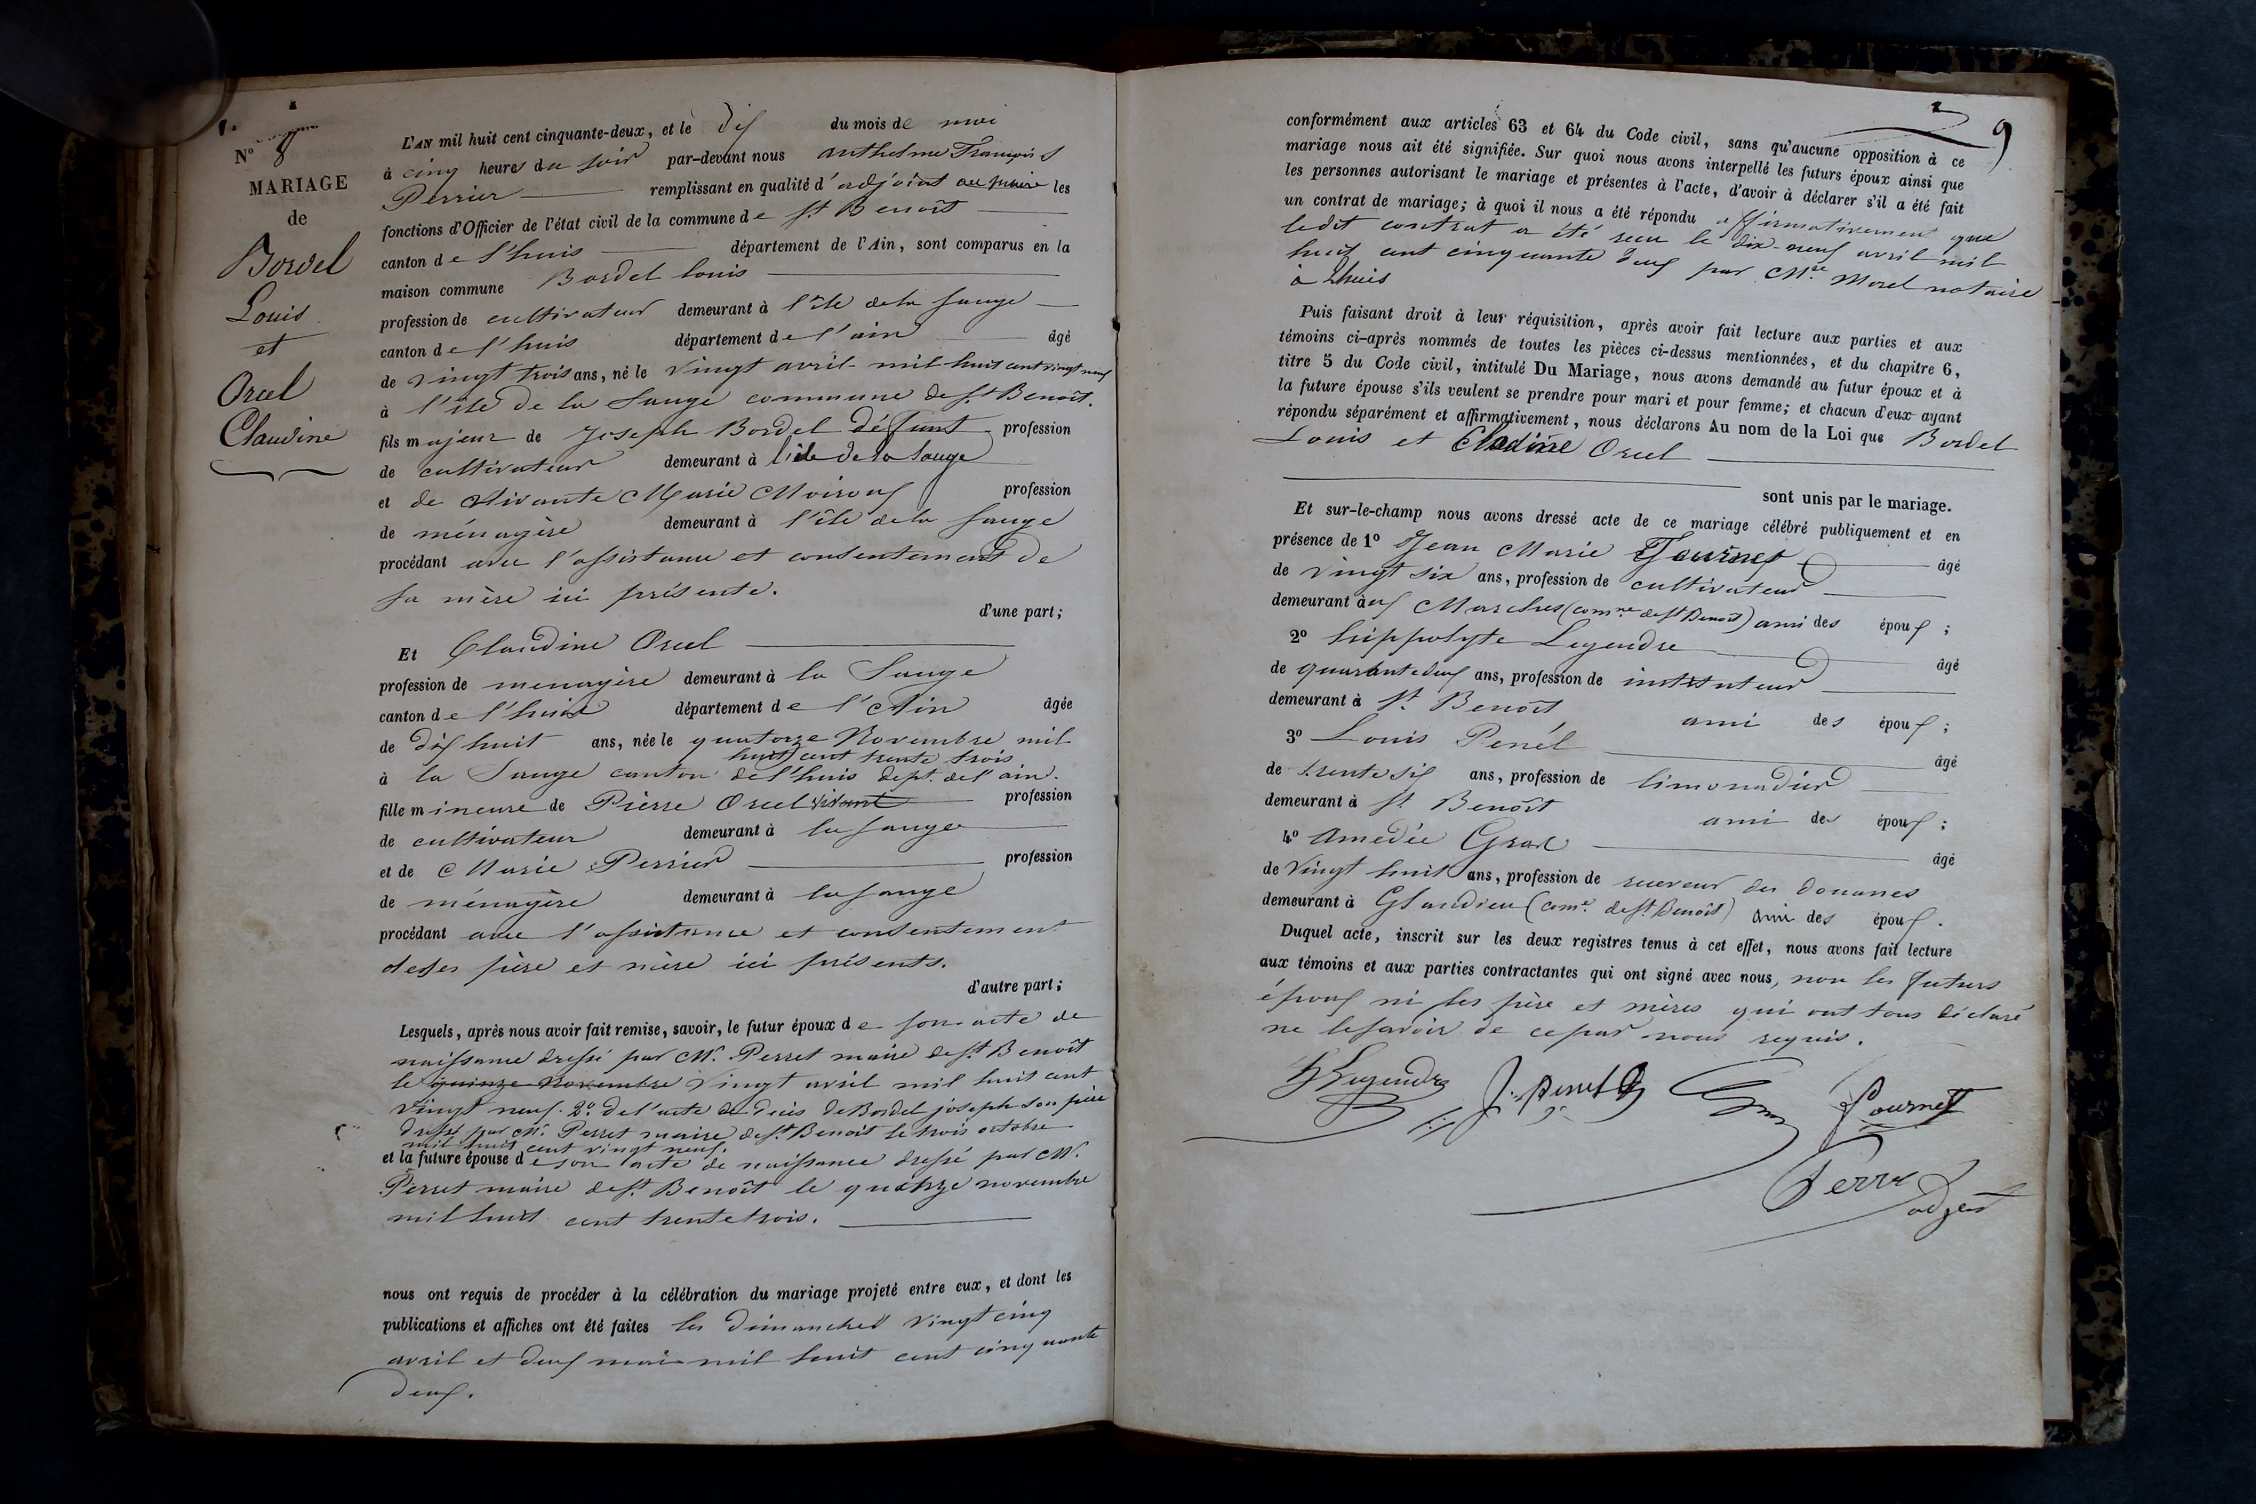 N° 8
MARIAGE
de
Bordel
Louis
et
Orcel
Claudine
L'AN mil huit cent cinquante-deux, et le dix du mois de mai
à cinq heures du soir par-devant nous anthelme François
Perrier remplissant en qualité d'adjoint au maire les
fonctions d'Officier de l'état civil de la commune de St Benoît
canton de l'huis département de l'Ain, sont comparus en la
maison commune Bordel louis
profession de cultivateur demeurant à l'île de la sauge
canton de l'huis département de l'ain âgé
de vingt trois ans, né le vingt avril mil huit cent vingt neuf
à l'île de la Sauge commune de St Benoît.
fils majeur de Joseph Bordel défunt profession
de cultivateur demeurant à l'île de la sauge
et de vivante Marie Moiroux profession
de ménagère demeurant à l'île de la sauge
procédant avec l'assistance et consentement de
sa mère ici présente.
d'une part;
Et Claudine Orcel
profession de menagère demeurant à la Sauge
canton de l'huis département de l'Ain âgée
de dix huit ans, née le quatorze Novembre mil
huit cent trente trois
à la Sauge canton de l'huis dept. de l'ain.
fille mineure de Pierre Orcel vivant profession
de cultivateur demeurant à la sauge
et de Marie Perrier profession
de ménagère demeurant à la sauge
procédant avec l'assistance et consentement
de ses père et mère ici présents.
d'autre part;
Lesquels, après nous avoir fait remise, savoir, le futur époux de son acte de
naissance dressé par Mr. Perret maire de St Benoît
le quinze novembre vingt avril mil huit cent
vingt neuf. 2° de l'acte de décès de Bordel joseph son père
dressé par Mr. Perret maire de St Benoit le trois octobre
mil huit cent vingt neuf.
et la future épouse de son acte de naissance dressé par Mr.
Perret maire de St Benoît le quinze novembre
mil huit cent trente trois.
nous ont requis de procéder à la célébration du mariage projeté entre eux, et dont les
publications et affiches ont été faites les dimanches vingt cinq
avril et deux mai mil huit cent cinquante
deux.
9
conformément aux articles 63 et 64 du Code civil, sans qu'aucune opposition à ce
mariage nous ait été signifiée. Sur quoi nous avons interpellé les futurs époux ainsi que
les personnes autorisant le mariage et présentes à l'acte, d'avoir à déclarer s'il a été fait
un contrat de mariage; à quoi il nous a été répondu affirmativement que
ledit contrat a été reçu le dix-neuf avril mil
huit cent cinquante deux par Mre Morel notaire
à Lhuis
Puis faisant droit à leur réquisition, après avoir fait lecture aux parties et aux
témoins ci-après nommés de toutes les pièces ci-dessus mentionnées, et du chapitre 6,
titre 5 du Code civil, intitulé Du Mariage, nous avons demandé au futur époux et à
la future épouse s'ils veulent se prendre pour mari et pour femme; et chacun d'eux ayant
répondu séparément et affirmativement, nous déclarons Au nom de la Loi que Bordel
Louis et Claudine Orcel
sont unis par le mariage.
Et sur-le-champ nous avons dressé acte de ce mariage célébré publiquement et en
présence de 1° Jean Marie Fournet âgé
de vingt six ans, profession de cultivateur
demeurant aux Marches (comne de St Benoît) ami des époux;
2° hippolyte Legendre âgé
de quarante deux ans, profession de instituteur
demeurant à St Benoît ami des époux;
3° Louis Penél âgé
de trente six ans, profession de limonadier
demeurant à St Benoît ami des époux;
4° Amedée Gras âgé
de vingt huit ans, profession de receveur des douanes
demeurant à Glandieu (come. de St Benoît) ami des époux.
Duquel acte, inscrit sur les deux registres tenus à cet effet, nous avons fait lecture
aux témoins et aux parties contractantes qui ont signé avec nous, non les futurs
époux ni les père et mères qui ont tous déclaré
ne le savoir de ce par nous requis.
H Legendre Gras Fournet
Perrier
adjoint